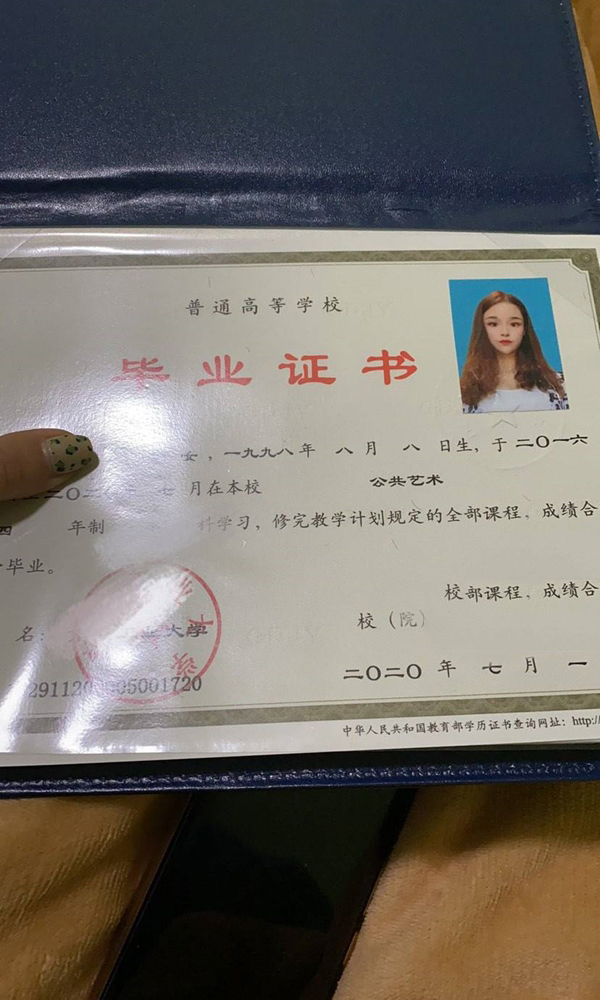 普通高等学校
毕业证书
女，一九九八年 八月 八 日生，于二〇一六
月在本校 公共艺术
四 年制 科学习，修完教学计划规定的全部课程，成绩合
毕业。
校部课程，成绩合
名： 大学 校（院）
二〇二〇 年 七 月 一
05001720
中华人民共和国教育部学历证书查询网址：http:/